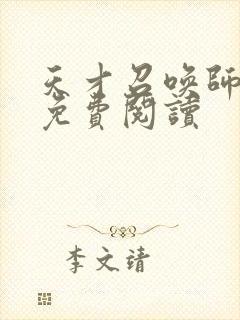 天才召唤師
免費閱讀
李文靖